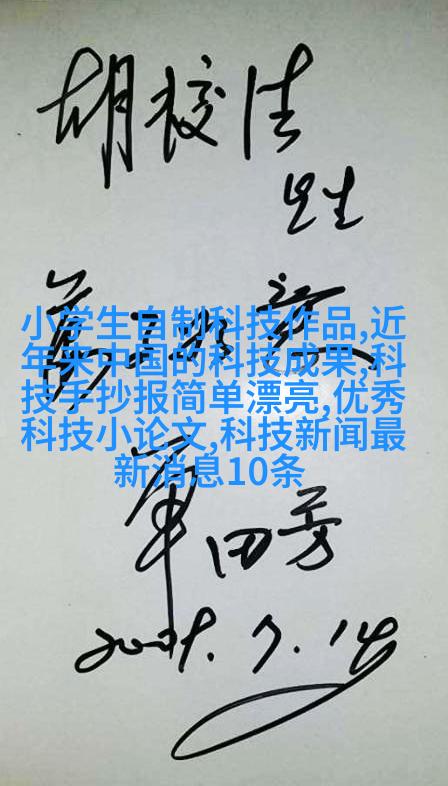 先生
小学生自制科技作品,近
年来中国的科技成果,科
技手抄报简单漂亮,优秀
科技小论文,科技新闻最
新消息10条
单田芳